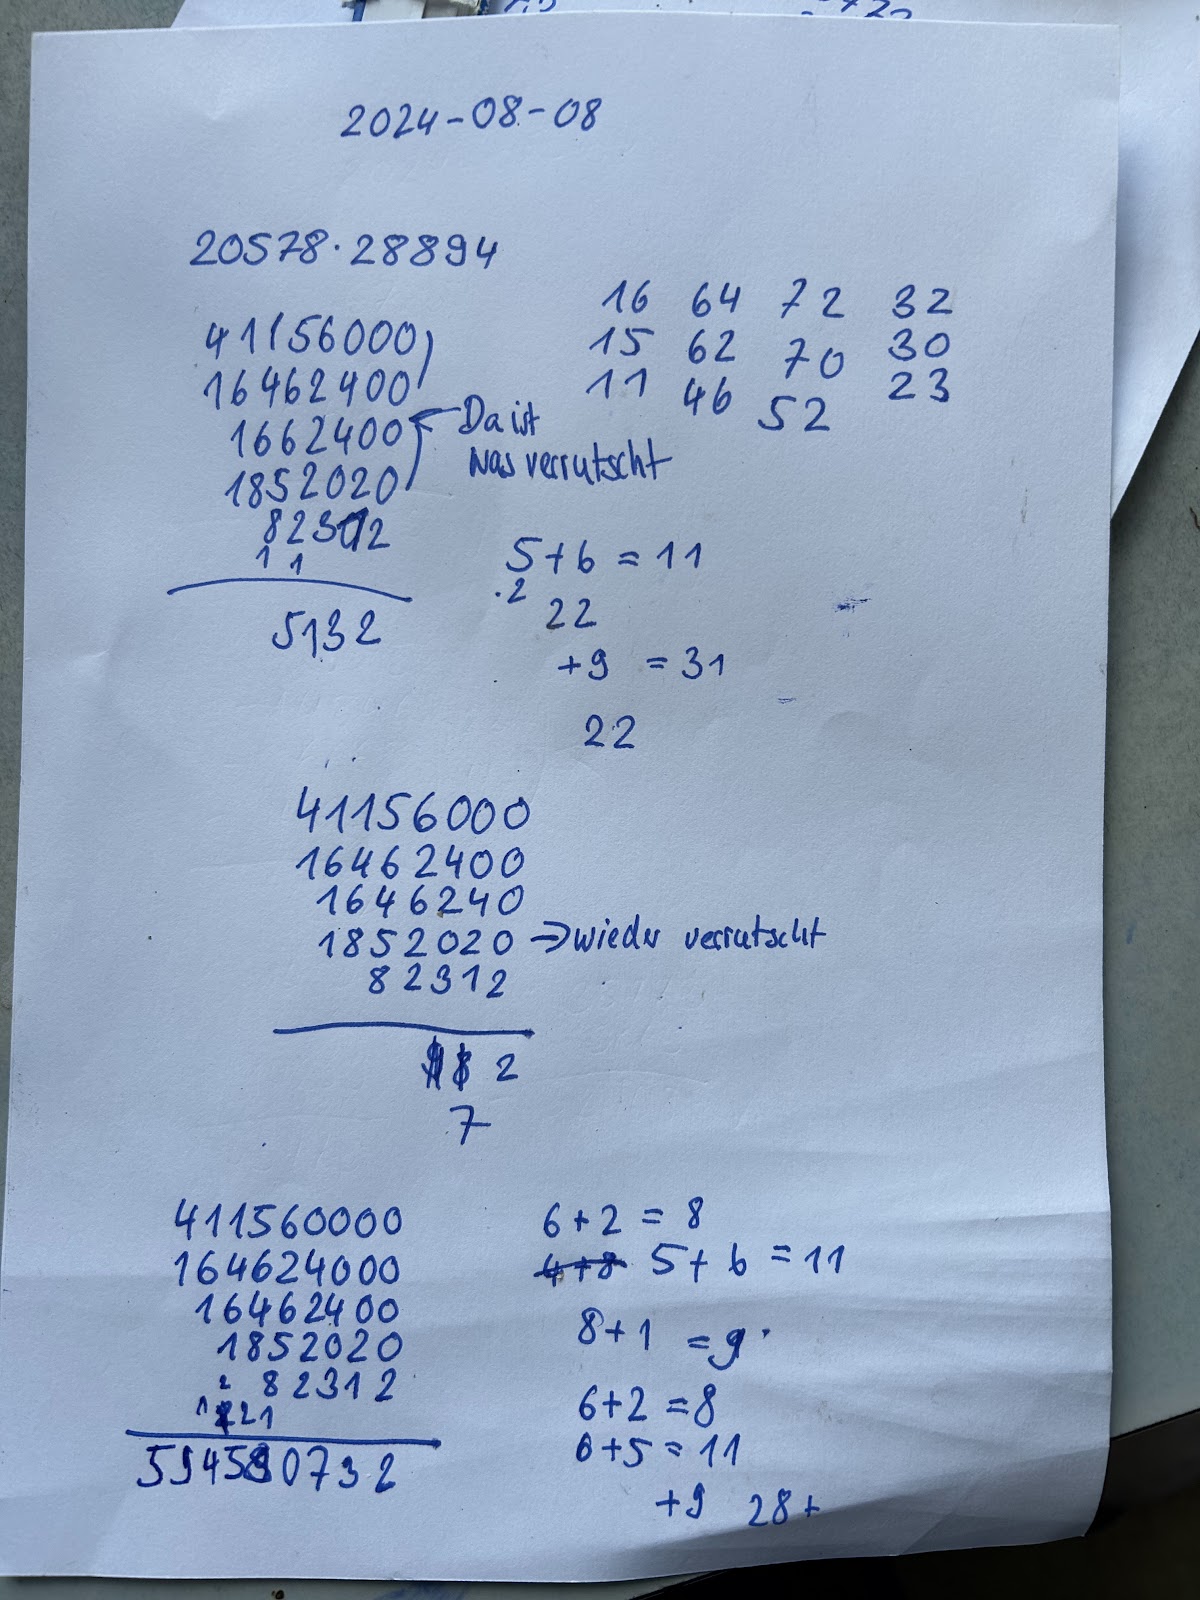 2024-08-08
20578·28894
41156000
16462400
1662400
1852020
82312
1 1
5132
16 64 72 32
15 62 70 30
11 46 52 23
Da ist
was verrutscht
5+6 = 11
·2
22
+9 = 31
22
41156000
16462400
1646240
1852020 → wieder verrutscht
82312
2
7
411560000
164624000
16462400
1852020
82312
2
1 21
594580732
6+2 = 8
4+8 5+6 = 11
8+1 = 9
6+2 = 8
6+5 = 11
+9 28+